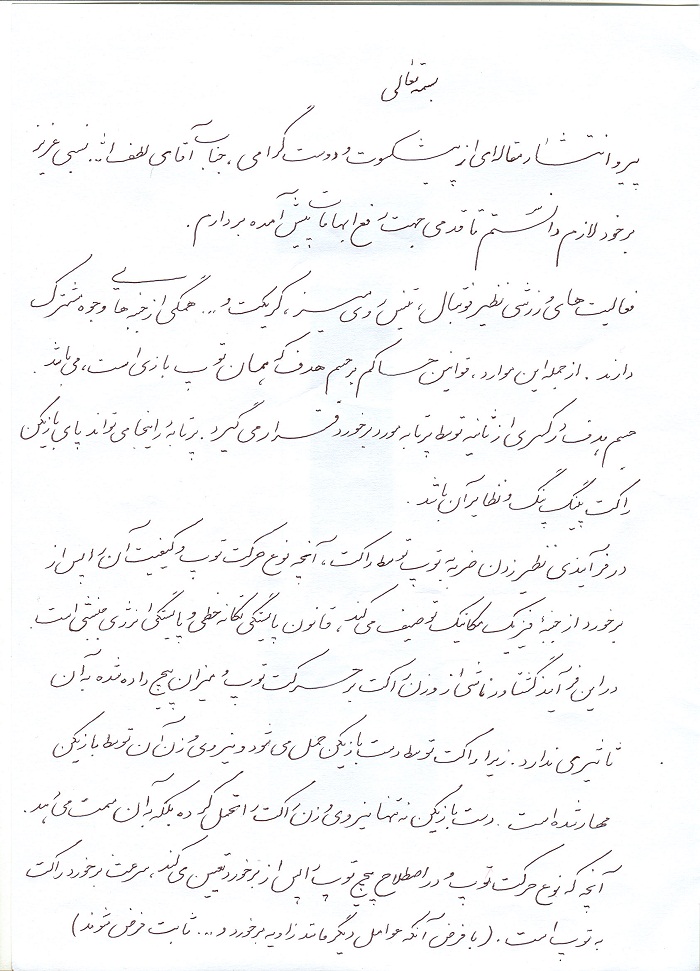 بسمه تعالی
پیرو انتشار مقاله‌ای از پیشکسوت و دوست گرامی، جناب آقای لطف‌ا... نسبی عزیز
بر خود لازم دانستم تا قدمی جهت رفع ابهامات پیش آمده بردارم.
فعالیت‌های ورزشی نظیر فوتبال، تنیس روی میز، کریکت و... همگی از جنبه‌هایی وجوه مشترک
دارند. از جمله این موارد، قوانین حاکم بر جسم هدف که همان توپ بازی است، می‌باشد.
جسم هدف در کسری از ثانیه توسط پرتابه مورد برخورد قرار می‌گیرد. پرتابه در اینجا می‌تواند پای بازیکن
راکت پینگ پنگ و نظایر آن باشد.
در فرآیندی نظیر زدن ضربه به توپ توسط راکت، آنچه نوع حرکت توپ و کیفیت آن را پس از
برخورد از جنبهٔ فیزیک مکانیک توصیف می‌کند، قانون پایستگی تکانه خطی و پایستگی انرژی جنبشی است.
در این فرآیند گشتاور ناشی از وزن راکت بر حرکت توپ و میزان پیچ داده شده به آن
تاثیری ندارد. زیرا راکت توسط دست بازیکن حمل می‌شود و نیروی وزن آن توسط بازیکن
مهار شده است. دست بازیکن نه تنها نیروی وزن راکت را تحمل کرده بلکه به آن سمت می‌دهد.
آنچه که نوع حرکت توپ و در اصطلاح پیچ توپ را پس از برخورد تعیین می‌کند، سرعت برخورد راکت
به توپ است. (با فرض آنکه عوامل دیگر مانند زاویه برخورد و... ثابت فرض شوند)